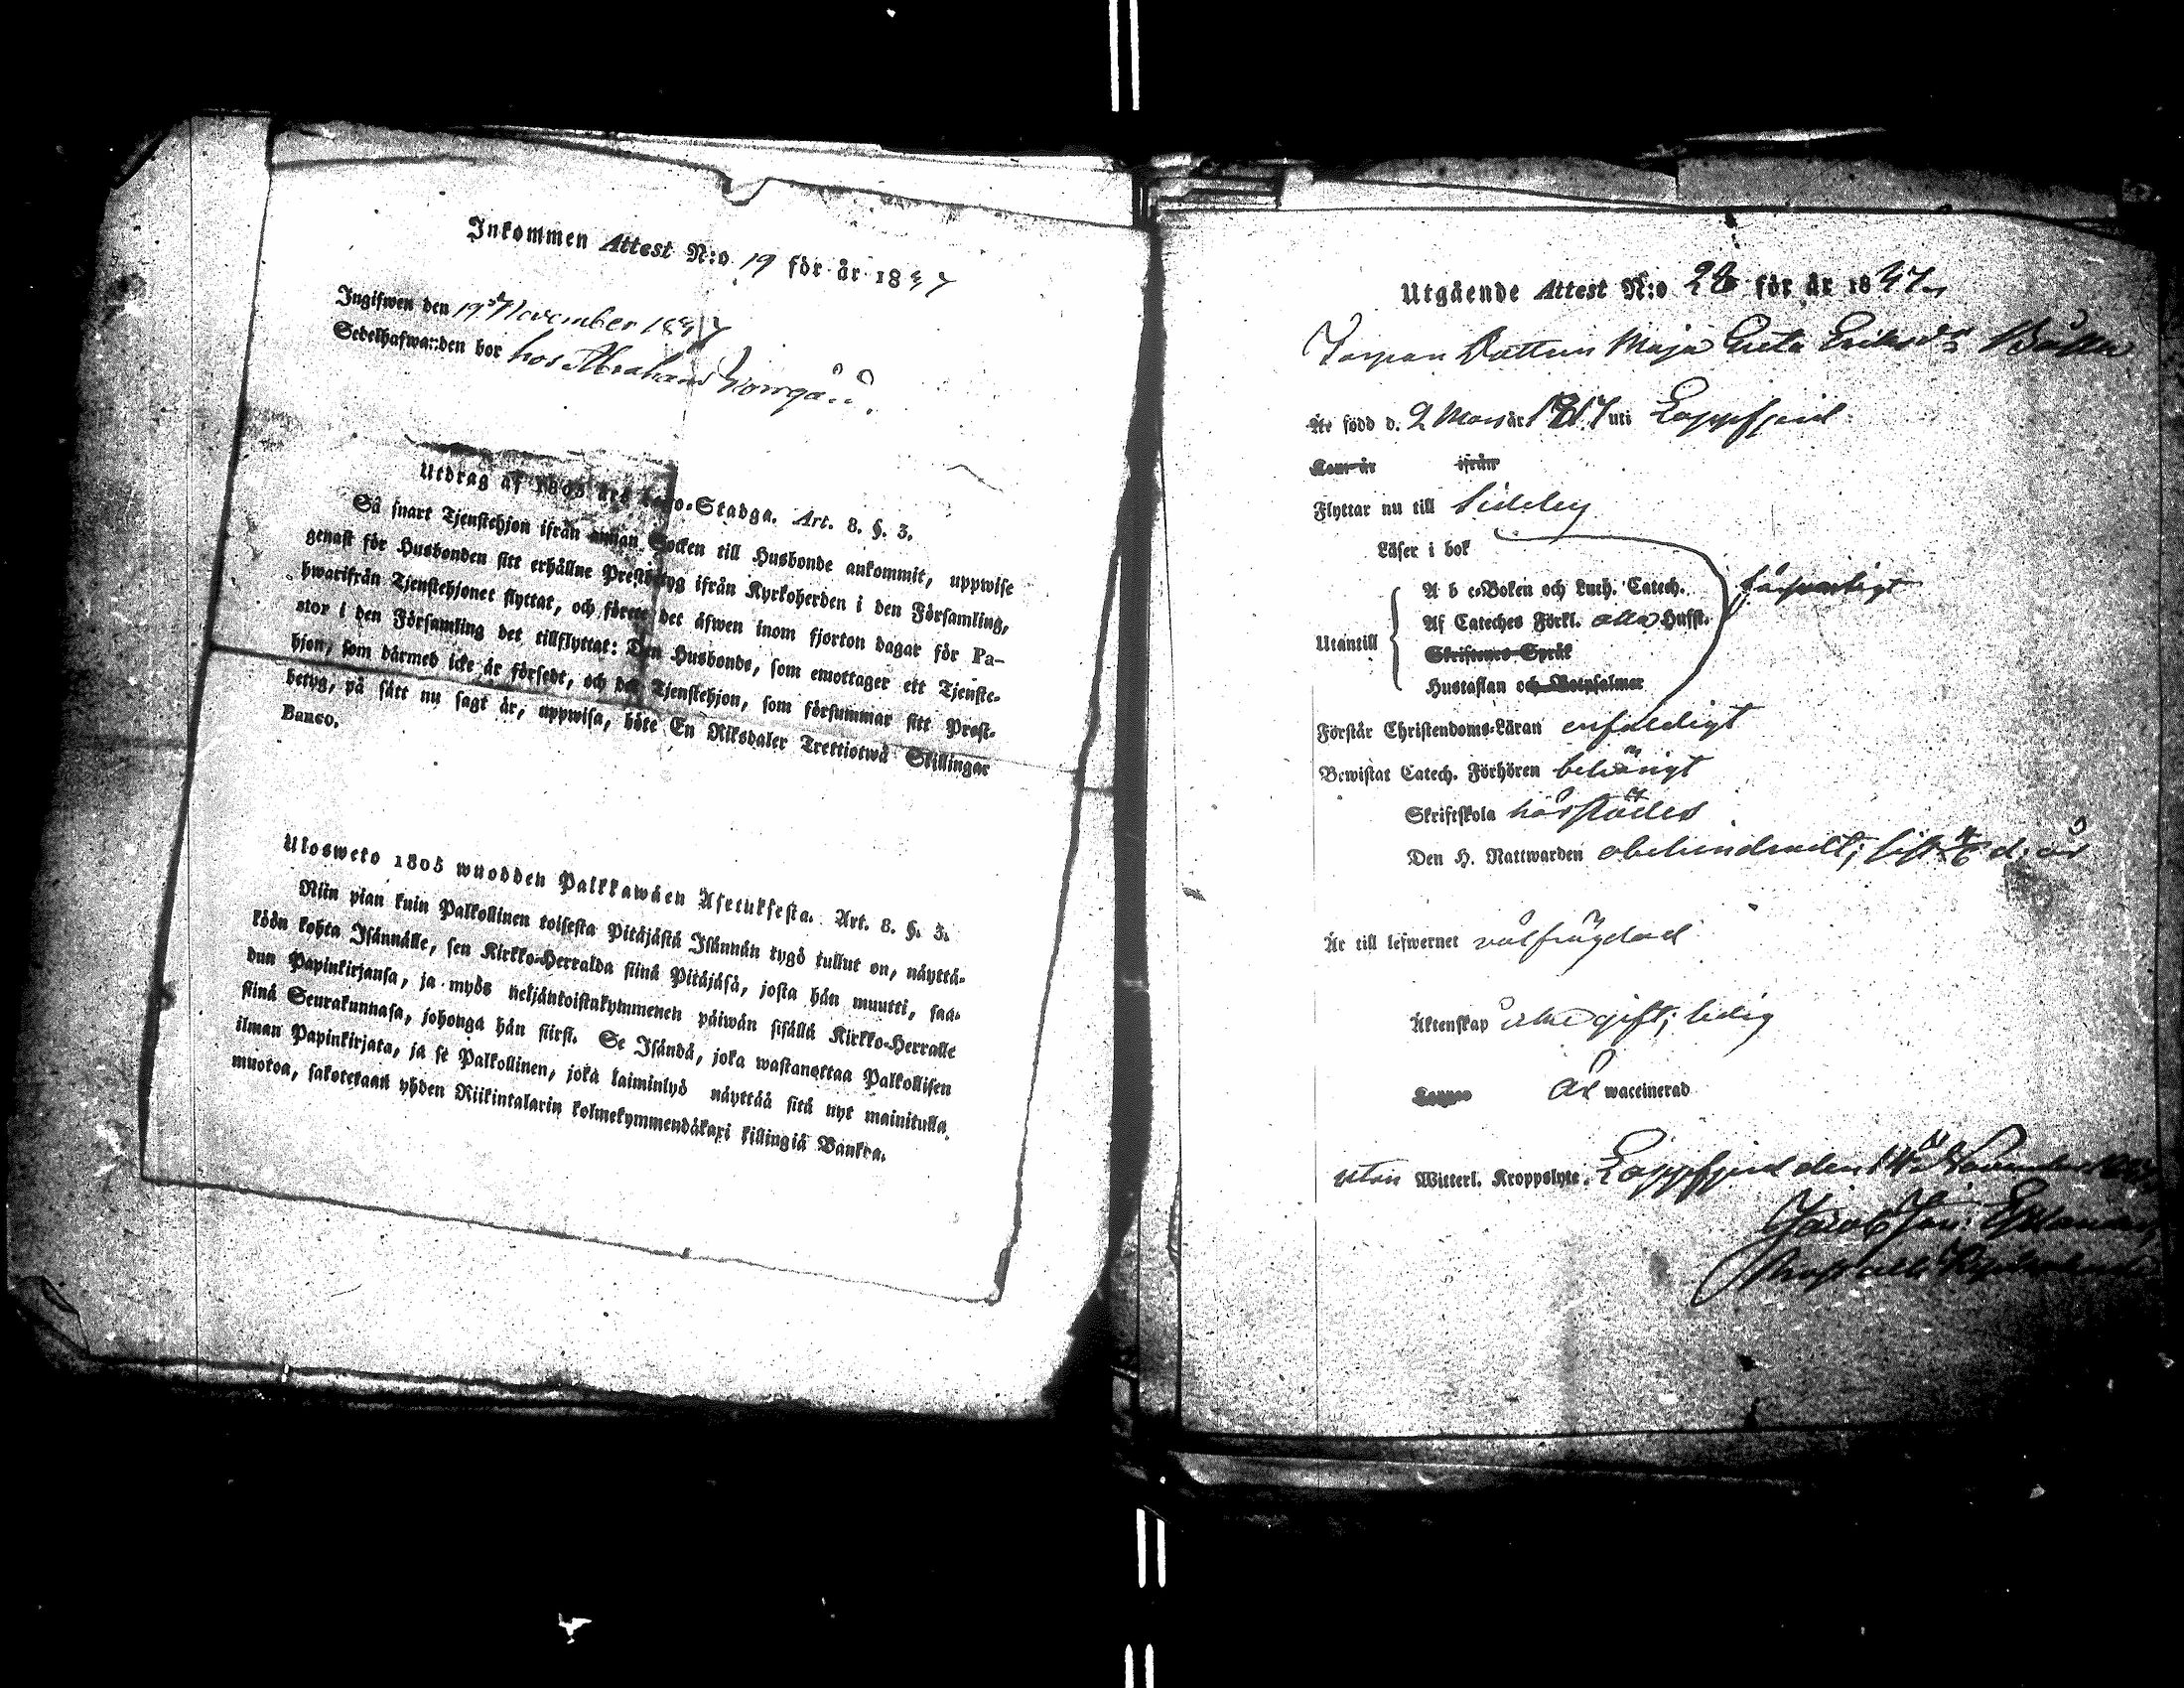 Inkommen Attest N:o 19 för år 1847
Ingifwen den 19 November 1847
Sedelhafwanden bor hos Abraham
Utdrag af 1805 års Lego-Stadga. Art. 8. §. 3.
Så snart Tjenstehjon ifrån annan Socken till Husbonde ankommit, uppwise
genast för Husbonden sitt erhållne Prestbetyg ifrån Kyrkoherden i den Församling,
hwarifrån Tjenstehjonet flyttat, och förete det äfwen inom fjorton dagar för Pa-
stor i den Församling det tillflyttat: Den Husbonde, som emottager ett Tjenste-
hjon, som därmed icke är försedt, och det Tjenstehjon, som försummar sitt Prest-
betyg, på sätt nu sagt är, uppwisa, böte En Riksdaler Trettiotwå Skillingar
Banco.
Ulosweto 1805 wuodden Palkkawäen Asetuksesta. Art. 8. §. 3.
Niin pian kuin Palkollinen toisesta Pitäjästä Isännän tygö tullut on, näyttä-
köön kohta Isännälle, sen Kirkko-Herralda siinä Pitäjäsä, josta hän muutti, saa-
dun Papinkirjansa, ja myös neljäntoistakymmenen päiwän sisällä Kirkko-Herralle
siinä Seurakunnasa, johonga hän siirsi. Se Isändä, joka wastanottaa Palkollisen
ilman Papinkirjata, ja se Palkollinen, joka laiminlyö näyttää sitä nyt mainitulla
muotoa, sakotetaan yhden Riikintalarin kolmekymmendäkaxi killingiä Bankoa.
Utgående Attest N:o 28 för år 1847
Torpare Dottren Maja Greta Eriksdr
Är född d. 2 Mars år 1817 uti Lappfjerd
Kom år ifrån
Flyttar nu till Sideby
Läser i bok
A b c-Boken och Luth. Catech.
försvarligt
Af Cateches Förkl. alla Husst.
Utantill
Skriftenes Språk
Hustaflan och Botpsalmer
Förstår Christendoms-Läran enfaldigt
Bewistat Catech. Förhören behörigt
Skriftskola härstädes
Den H. Nattwarden obehindradt; sist d. år
Är till lefwernet välfrägdad
Äktenskap icke gift; ledig
är waccinerad
utan Witterl. Kroppslyte. Lappfjerd den November
Jacob